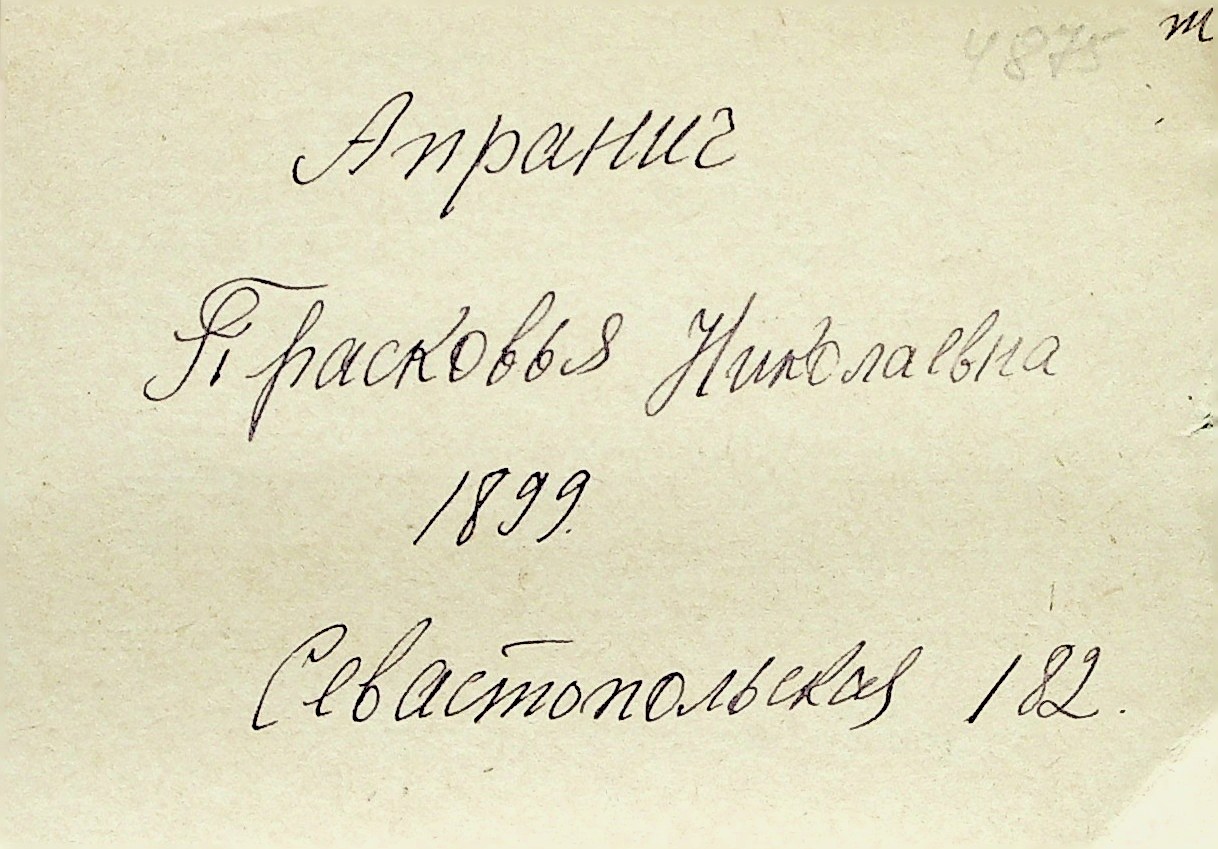 4875 т
Апранич
Прасковья Николаевна
1899.
Севастопольская 182.